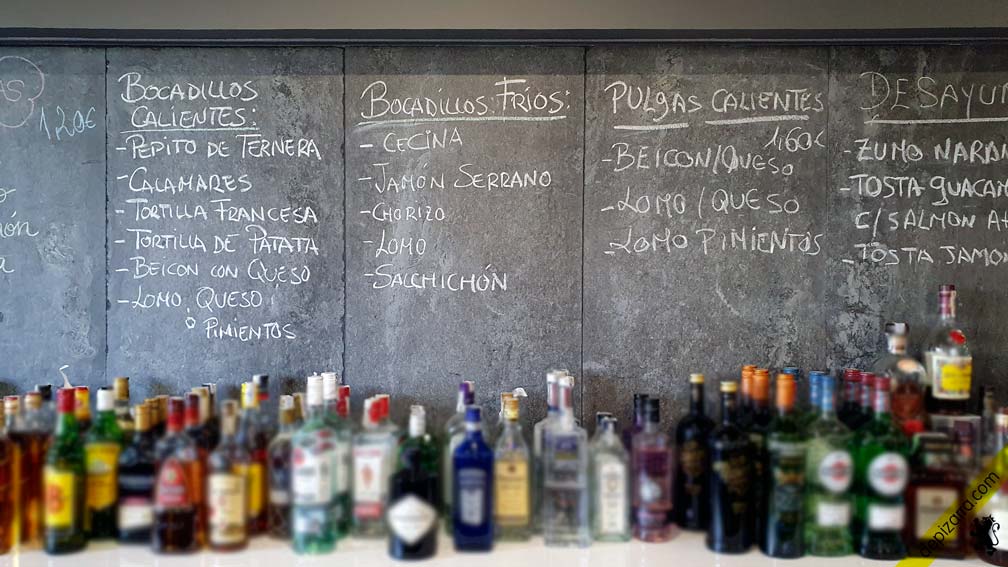 AS
1,20€
ón
a
BOCADILLOS
CALIENTES:
- PEPITO DE TERNERA
- CALAMARES
- TORTILLA FRANCESA
- TORTILLA DE PATATA
- BEICON CON QUESO
- LOMO, QUESO
ó PIMIENTOS
BOCADILLOS FRÍOS:
- CECINA
- JAMÓN SERRANO
- CHORIZO
- LOMO
- SALCHICHÓN
PULGAS CALIENTES
1,60€
- BEICON/QUESO
- LOMO/QUESO
- LOMO PIMIENTOS
DESAYU
- ZUMO NARAN
- TOSTA GUACAM
C/SALMON A
- TOSTA JAMO
depizarra.com